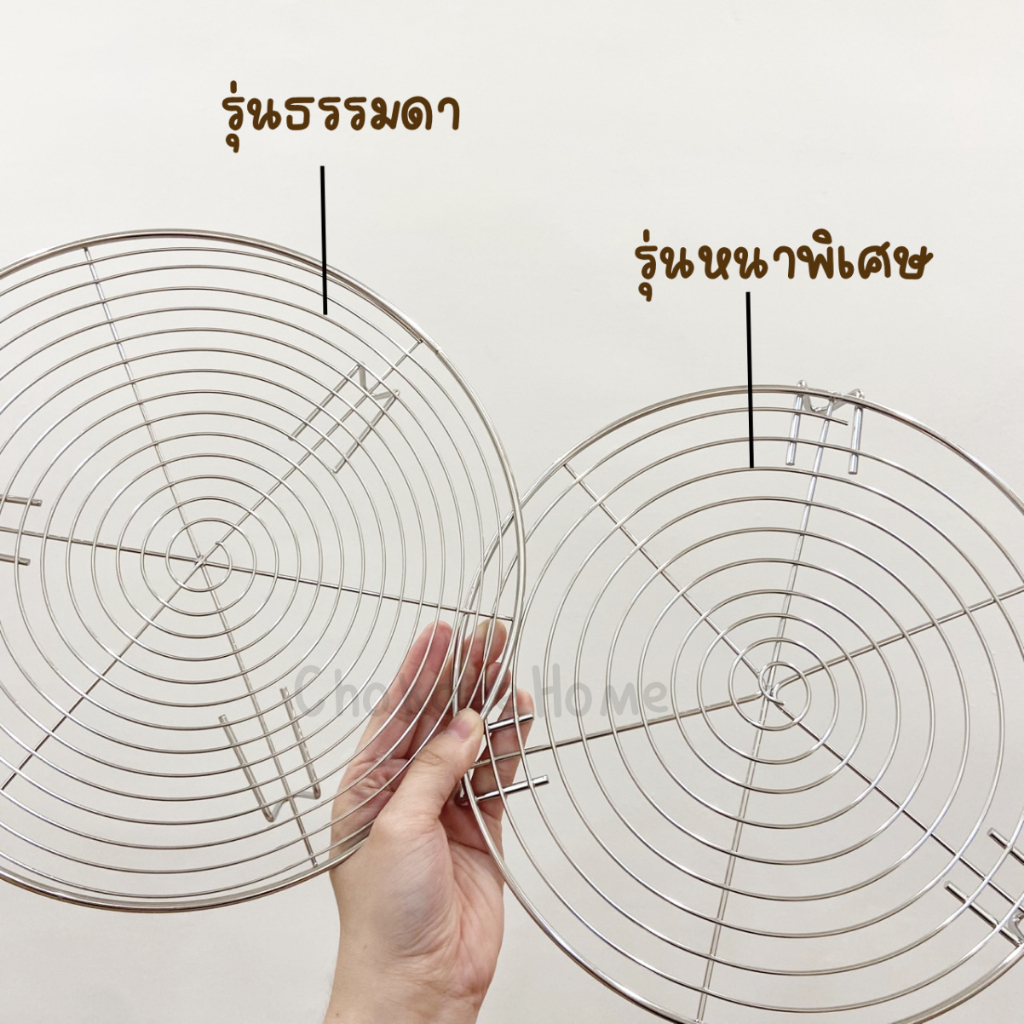 รุ่นธรรมดา
รุ่นหนาพิเศษ
Home